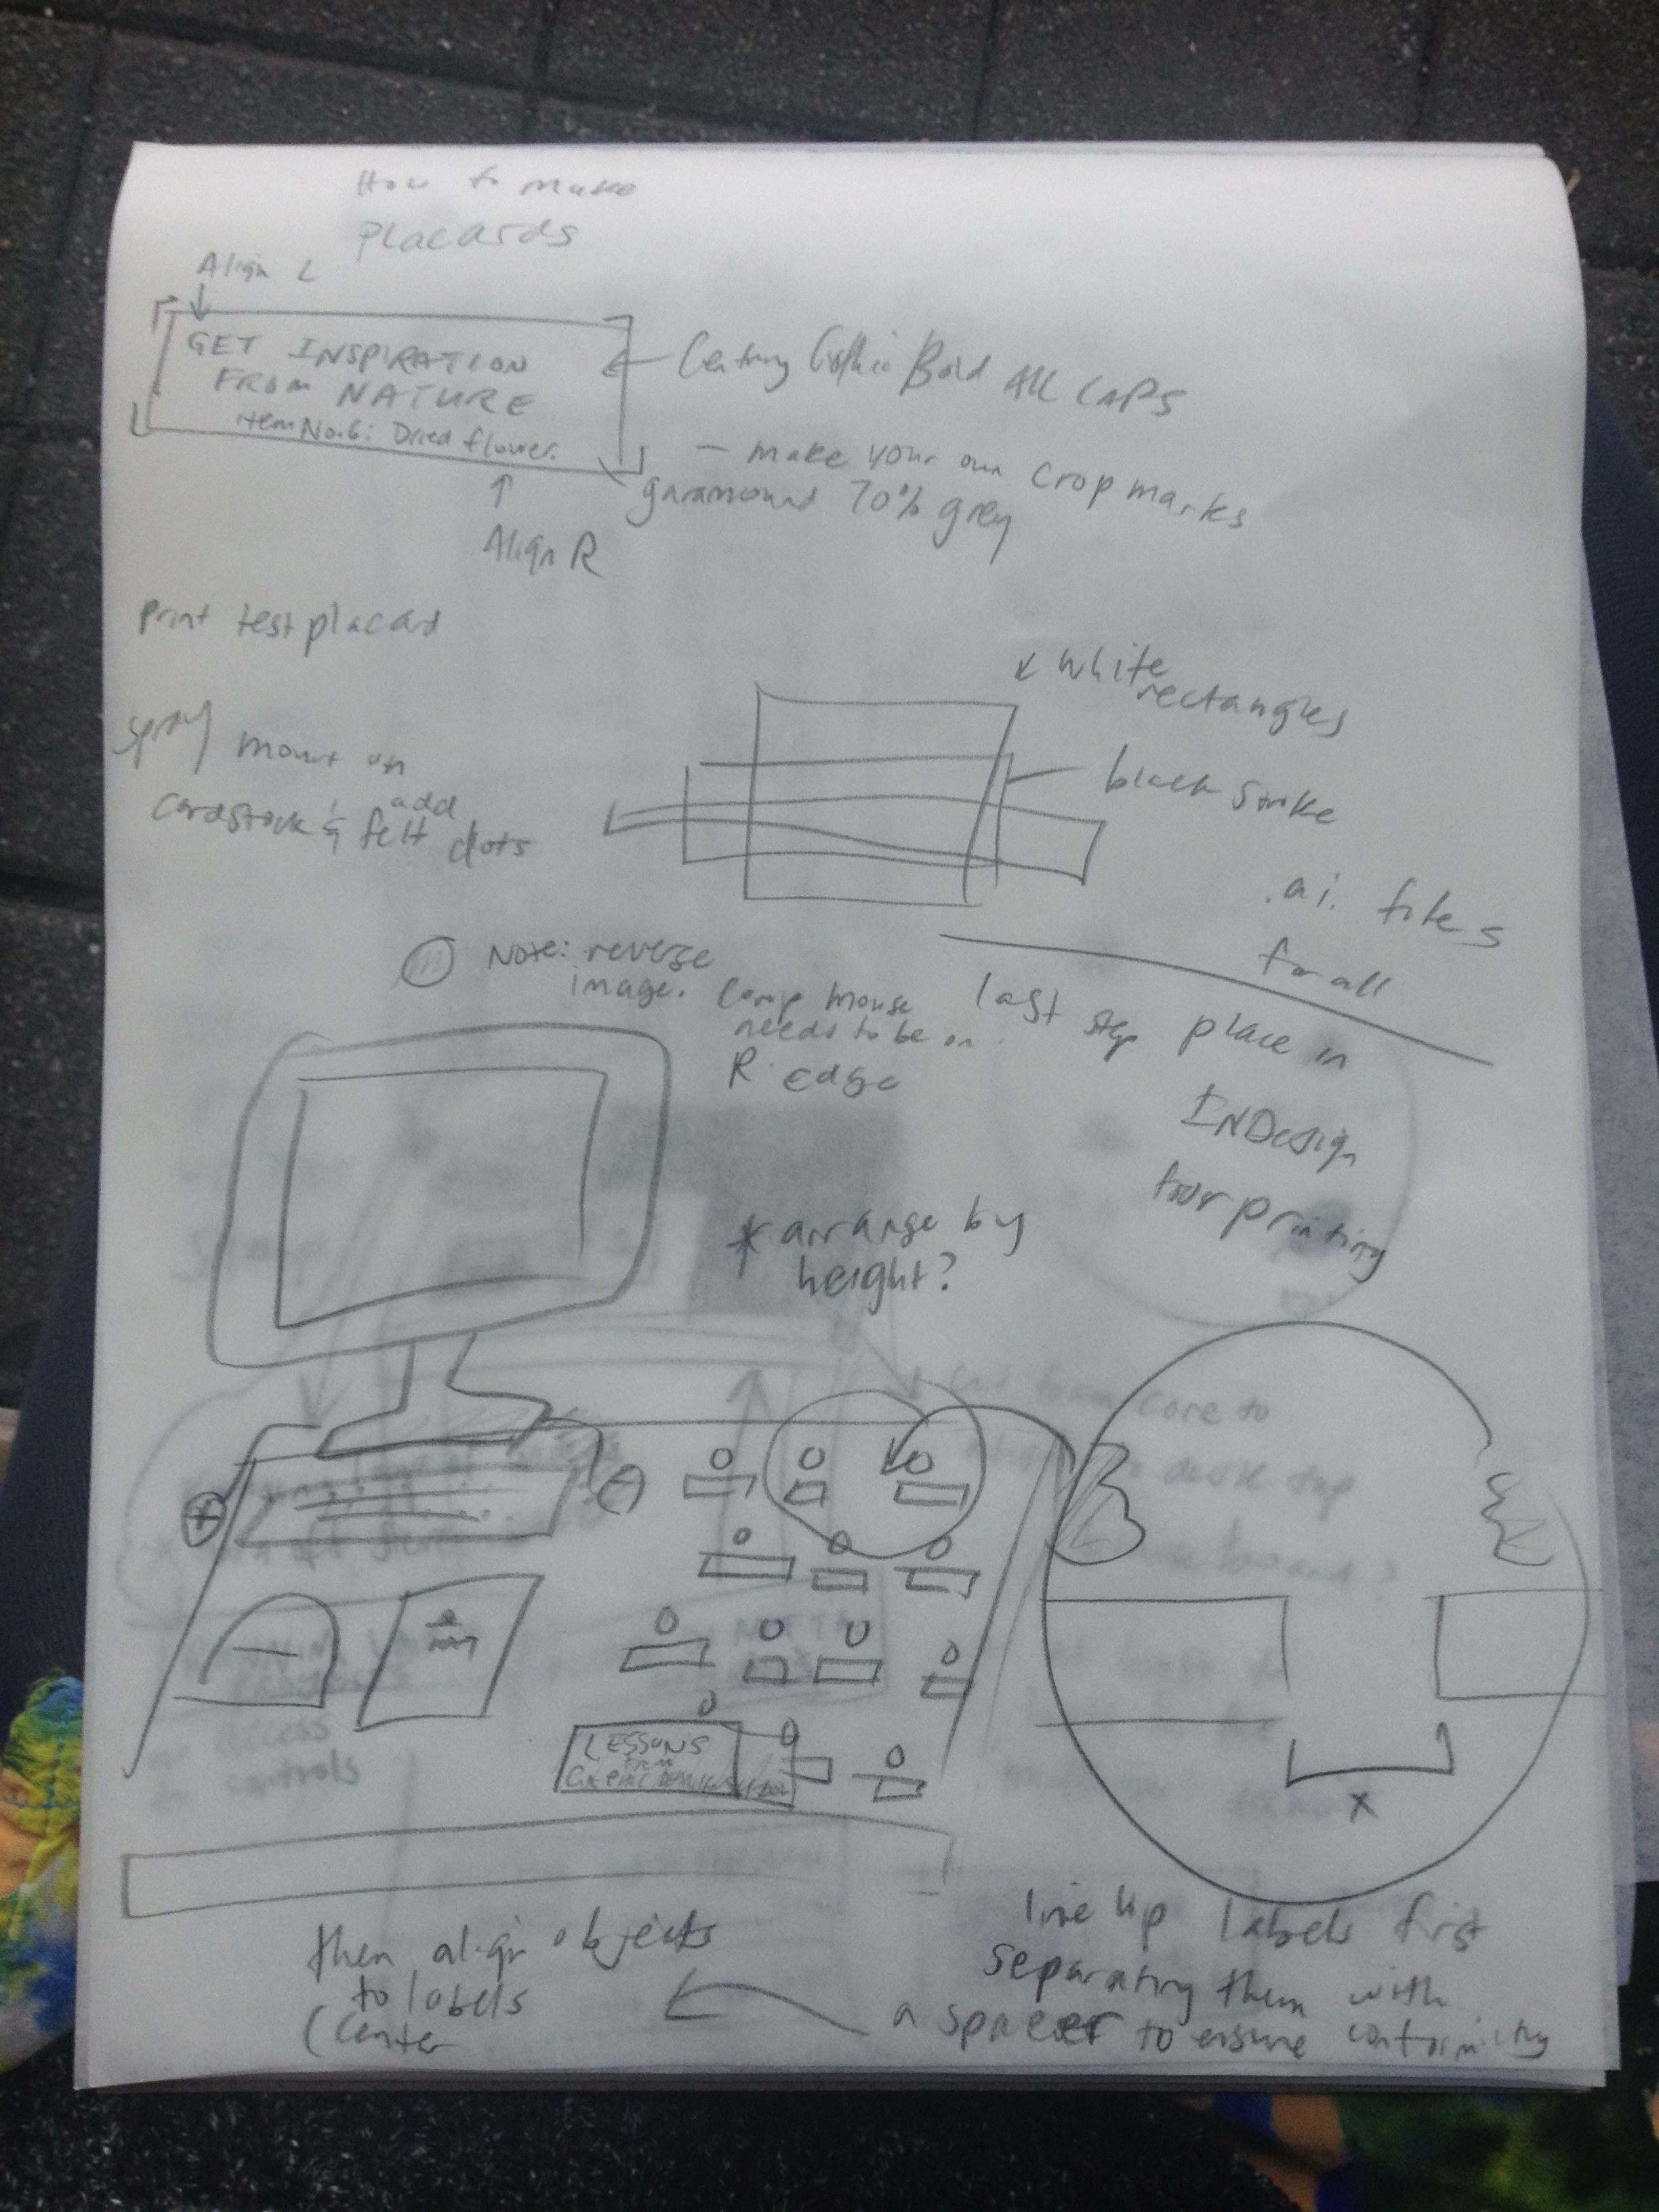 How to make
placards
Align L
GET INSPIRATION
FROM NATURE
item No.6: Dried flower.
Century Gothic Bold ALL CAPS
— make your own crop marks
garamond 70% grey
Align R
print test placard
white
rectangles
black stroke
spray mount on
cardstock & add
felt dots
.ai. files
for all
Note: reverse
image. comp mouse
needs to be on
R. edge
last step place in
INDesign
for printing
* arrange by
height?
LESSONS
from
GRAPHIC DESIGN SCHOOL
x
line up labels first
separating them with
a spacer to ensure conformity
then align objects
to labels
(center
core to
desk top
board?
access
controls